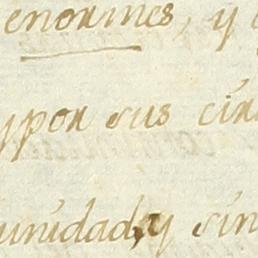 enormes, y
y por sus cir
unidad, y sin